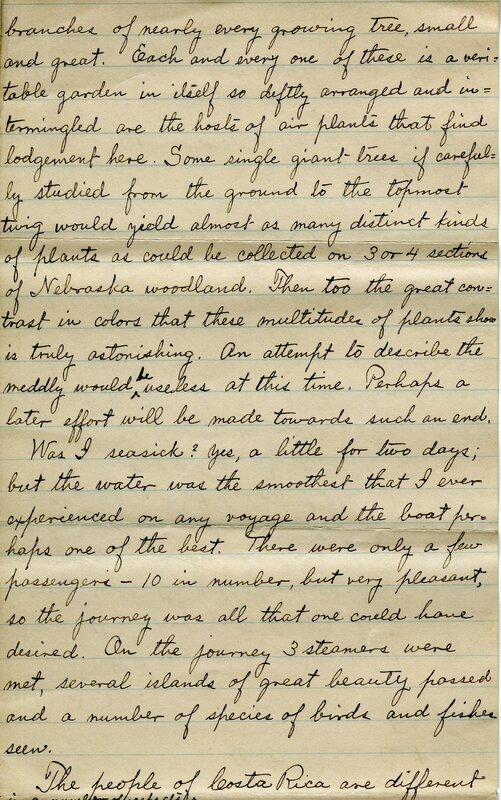 branches of nearly every growing tree, small
and great. Each and every one of these is a veri=
table garden in itself so deftly arranged and in=
termingled are the hosts of air plants that find
lodgement here. Some single giant trees if careful-
ly studied from the ground to the topmost
twig would yield almost as many distinct kinds
of plants as could be collected on 3 or 4 sections
of Nebraska woodland. Then too the great con=
trast in colors that these multitudes of plants show
is truly astonishing. An attempt to describe the
meddly would be useless at this time. Perhaps a
later effort will be made towards such an end.
Was I seasick? yes, a little for two days;
but the water was the smoothest that I ever
experienced on any voyage and the boat per-
haps one of the best. There were only a few
passengers - 10 in number, but very pleasant,
so the journey was all that one could have
desired. On the journey 3 steamers were
met, several islands of great beauty passed
and a number of species of birds and fishes
seen.
The people of Costa Rica are different